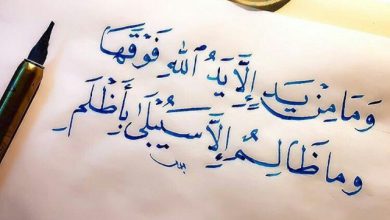 وَمَا مِنْ يَدٍ إِلَّا يَدُ ٱللهِ فَوْقَهَا
وما ظَالِمٌ إِلَّا سَيُبْلَىٰ بِأَظْلَمِ